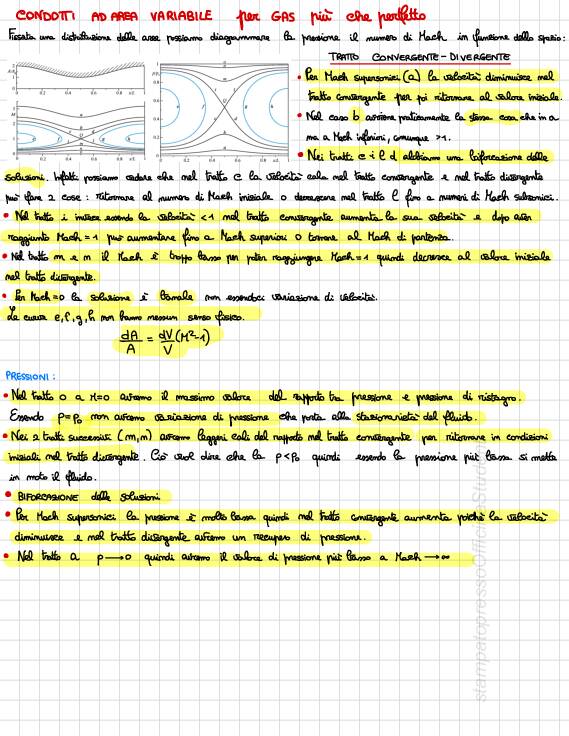 CONDOTTI AD AREA VARIABILE per GAS più che perfetto
Fissata una distribuzione delle aree possiamo diagrammare la pressione il numero di Mach in funzione dello spazio:
TRATTO CONVERGENTE-DIVERGENTE
• Per Mach supersonici (a) la velocità diminuisce nel
tratto convergente per poi ritornare al valore iniziale.
• Nel caso b avviene praticamente la stessa cosa che in a
ma a Mach inferiori, comunque >1.
• Nei tratti c i l d abbiamo una biforcazione delle
soluzioni. Infatti possiamo vedere che nel tratto c la velocità cala nel tratto convergente e nel tratto divergente
può fare 2 cose: ritornare al numero di Mach iniziale o decrescere nel tratto l fino a numeri di Mach subsonici.
• Nel tratto i invece essendo la velocità <1 nel tratto convergente aumenta la sua velocità e dopo aver
raggiunto Mach=1 può aumentare fino a Mach superiori o tornare al Mach di partenza.
• Nel tratto m e n il Mach è troppo basso per poter raggiungere Mach=1 quindi decresce al valore iniziale
nel tratto divergente.
• Per Mach=0 la soluzione è banale non essendoci variazione di velocità.
Le curve e,f,g,h non hanno nessun senso fisico.
dA/A = dV/V (M²-1)
PRESSIONI:
• Nel tratto o a M=0 avremo il massimo valore del rapporto tra pressione e pressione di ristagno.
Essendo p=p₀ non avremo variazione di pressione che porta alla stazionarietà del fluido.
• Nei 2 tratti successivi (m,n) avremo leggeri cali del rapporto nel tratto convergente per ritornare in condizioni
iniziali nel tratto divergente. Ciò vuol dire che la p<p₀ quindi essendo la pressione più bassa si mette
in moto il fluido.
• BIFORCAZIONE delle soluzioni
• Per Mach supersonici la pressione è molto bassa quindi nel tratto convergente aumenta poiché la velocità
diminuisce e nel tratto divergente avremo un recupero di pressione.
• Nel tratto a p→0 quindi avremo il valore di pressione più basso a Mach→∞